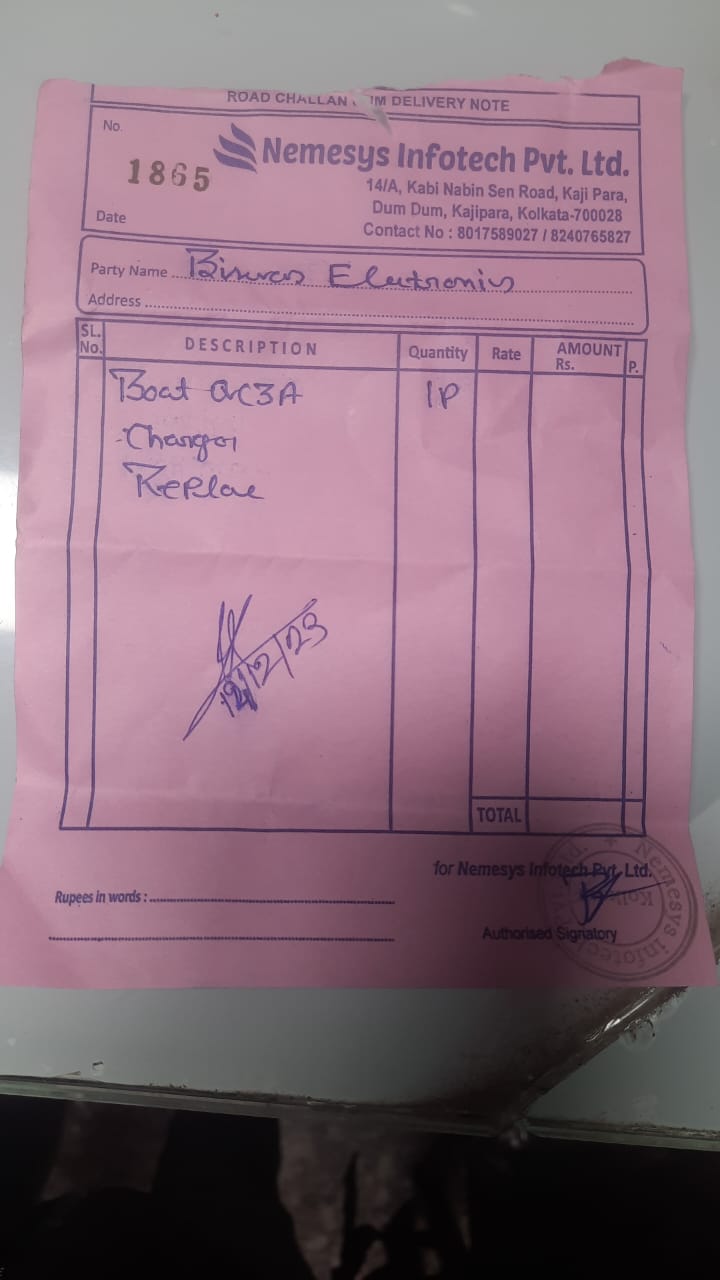 ROAD CHALLAN CUM DELIVERY NOTE
No.
1865
Nemesys Infotech Pvt. Ltd.
14/A, Kabi Nabin Sen Road, Kaji Para,
Dum Dum, Kajipara, Kolkata-700028
Contact No : 8017589027 / 8240765827
Date
Party Name Biswas Electronics
Address
SL. No. DESCRIPTION Quantity Rate AMOUNT Rs. P.
Boat QC3A 1P
Charger
Replace
12/2/23
TOTAL
for Nemesys Infotech Pvt. Ltd.
Rupees in words :
Authorised Signatory
Nemesys Infotech